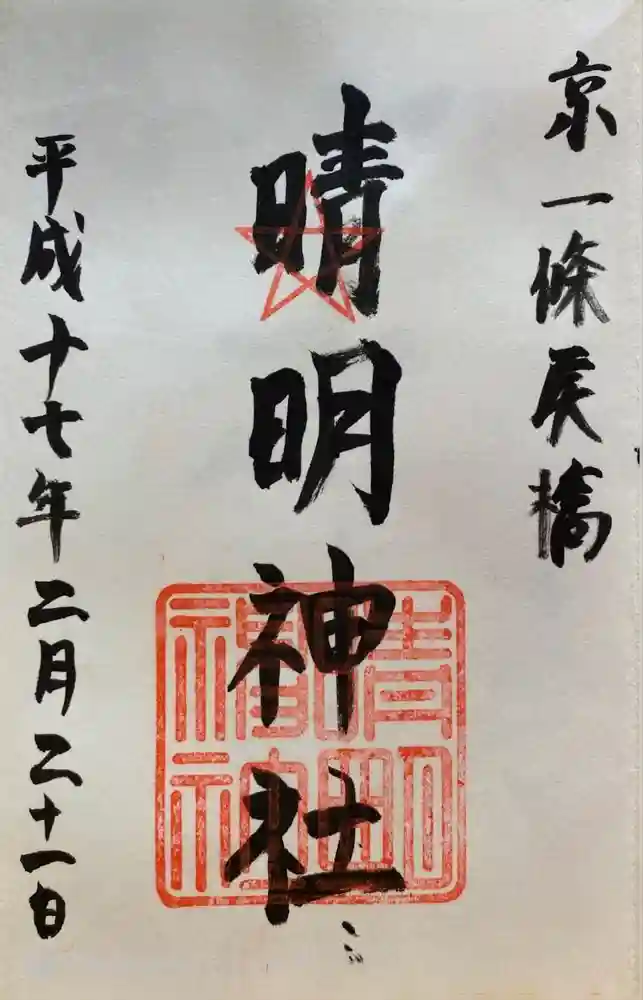 京一條戻橋
晴明神社
平成十七年二月二十一日